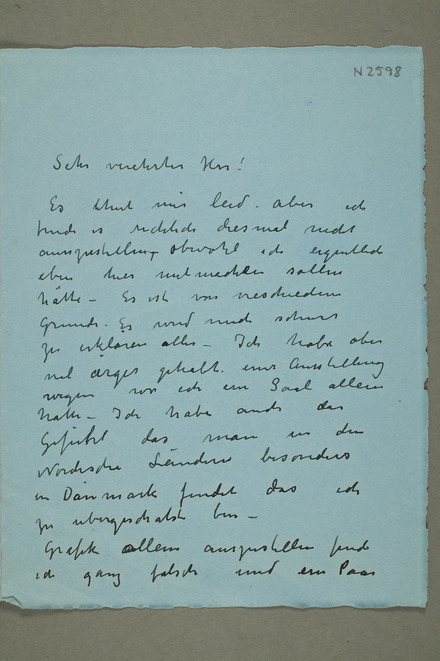 N 2598
Sehr verehrter Herr!
Es thut mir leid. aber ich
finde es richtich diesmal nicht
auszustellen obwohl ich eigentlich
eben hier mitmachen sollen
hätte – Es ist von verschiedene
Grunde. Es wird mich schwer
zu erklären alles – Ich habe aber
viel ärger gehabt. einer Ausstellung
wegen wo ich ein Saal allein
hatte – Ich habe auch das
Gefühl das man in den
Nordische Länders besonders
in Dänmark findet das ich
zu übergeschätzt bin –
Grafik allein auszustellen finde
ich ganz falsch und ein Paar